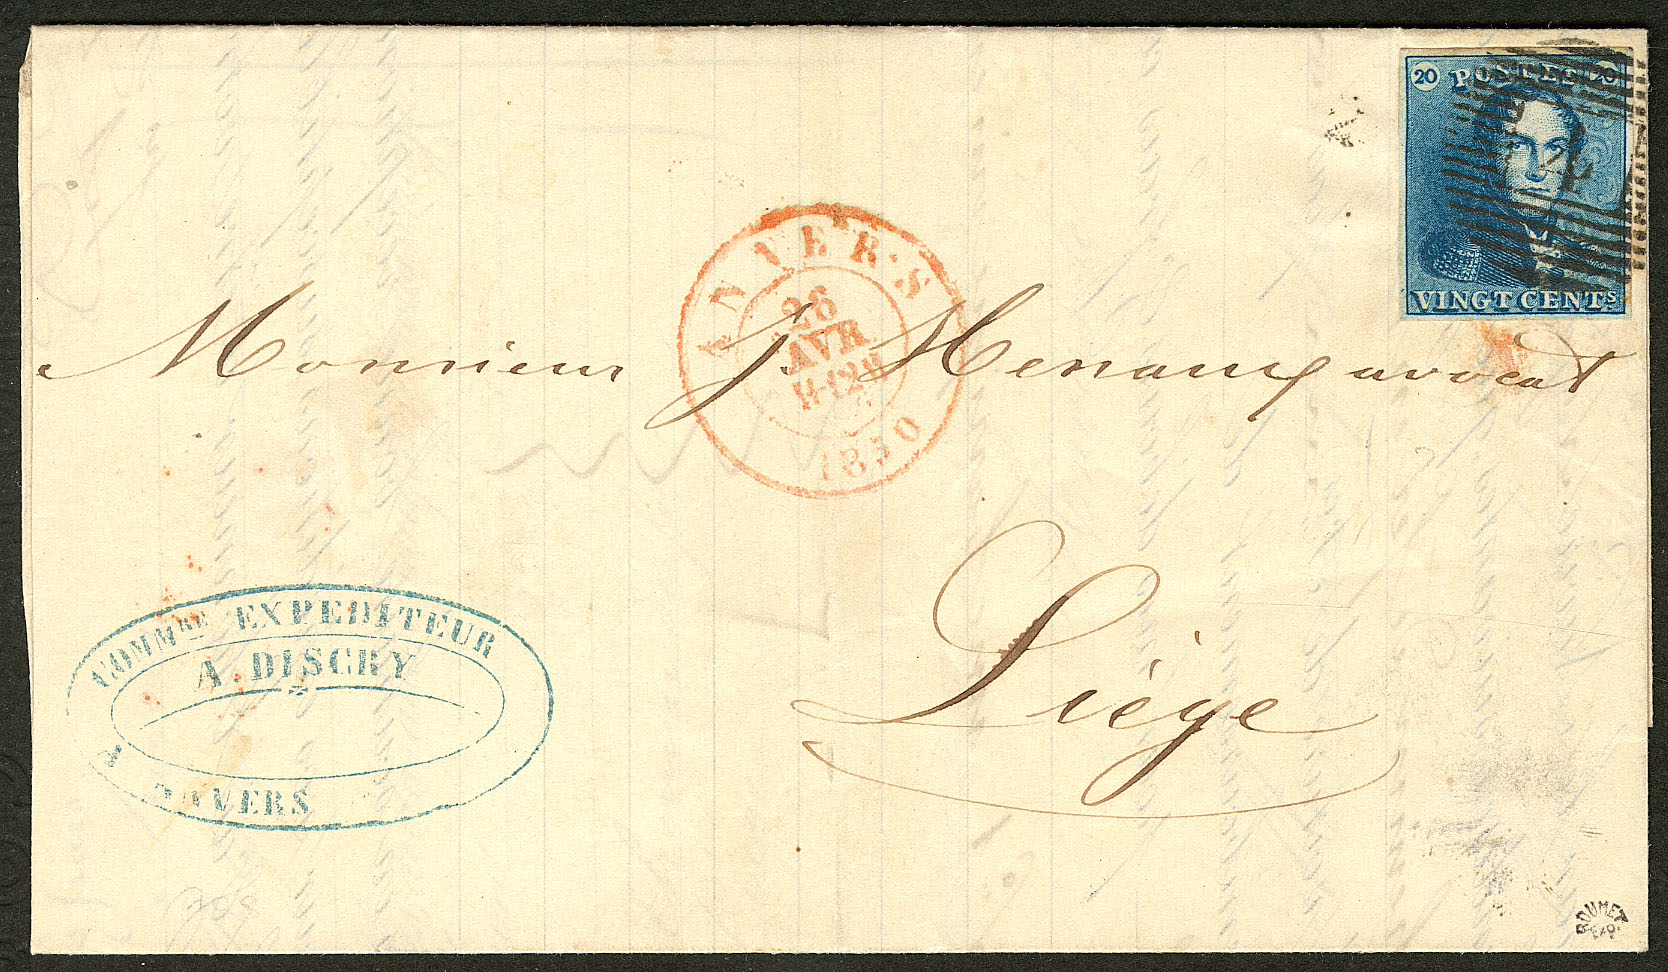 20 POSTES 20
VINGT CENTS
ANVERS
26
AVR
1850
Monsieur J. Henaux avocat
Liége
COMMRE EXPEDITEUR
A. DISCRY
A ANVERS
ROUMET
EXP.